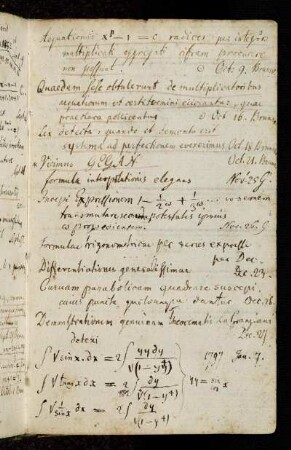 Aequationis x^p − 1 = 0 radices per integros
multiplicatae aggregatae cifram producere
non possunt. ☉ Oct. 9. Brunsv
Quaedam sese obtulerunt de multiplicatoribus
aequationum ut certi termini eiiciantur, quae
praeclara pollicentur ☉ Oct. 16. Bruns
Lex detecta: quando et demonstrata erit
systema ad perfectionem evexerimus Oct. 18 Bruns
* Vicimus GEGAN. Oct. 21. Bruns
formula interpolationis elegans Nov. 25 G.
Incepi Expressionem 1 − 1/2^ω + 1/3^ω … in seriem
transmutare secundum potestates ipsius
ω progredientem. Nov. 26. G
formulae trigonometricae per series express
per Dec.
Differentiationes generalissimae Dec. 23.
Curvam parabolicam quadrare suscepi,
cuius puncta quotcunque dantur Dec. 26.
Demonstrationem genuinam theorematis La Grangiani
detexi Dec. 27.
∫ √sin x . dx = 2 ∫ yy dy / √(1 − y⁴) 1797 Jan. 7.
∫ √tang x dx = 2 ∫ dy / √(1 − y⁴) yy = sin/cos x
∫ √(1/sin x) dx = 2 ∫ dy / √(1 − y⁴)